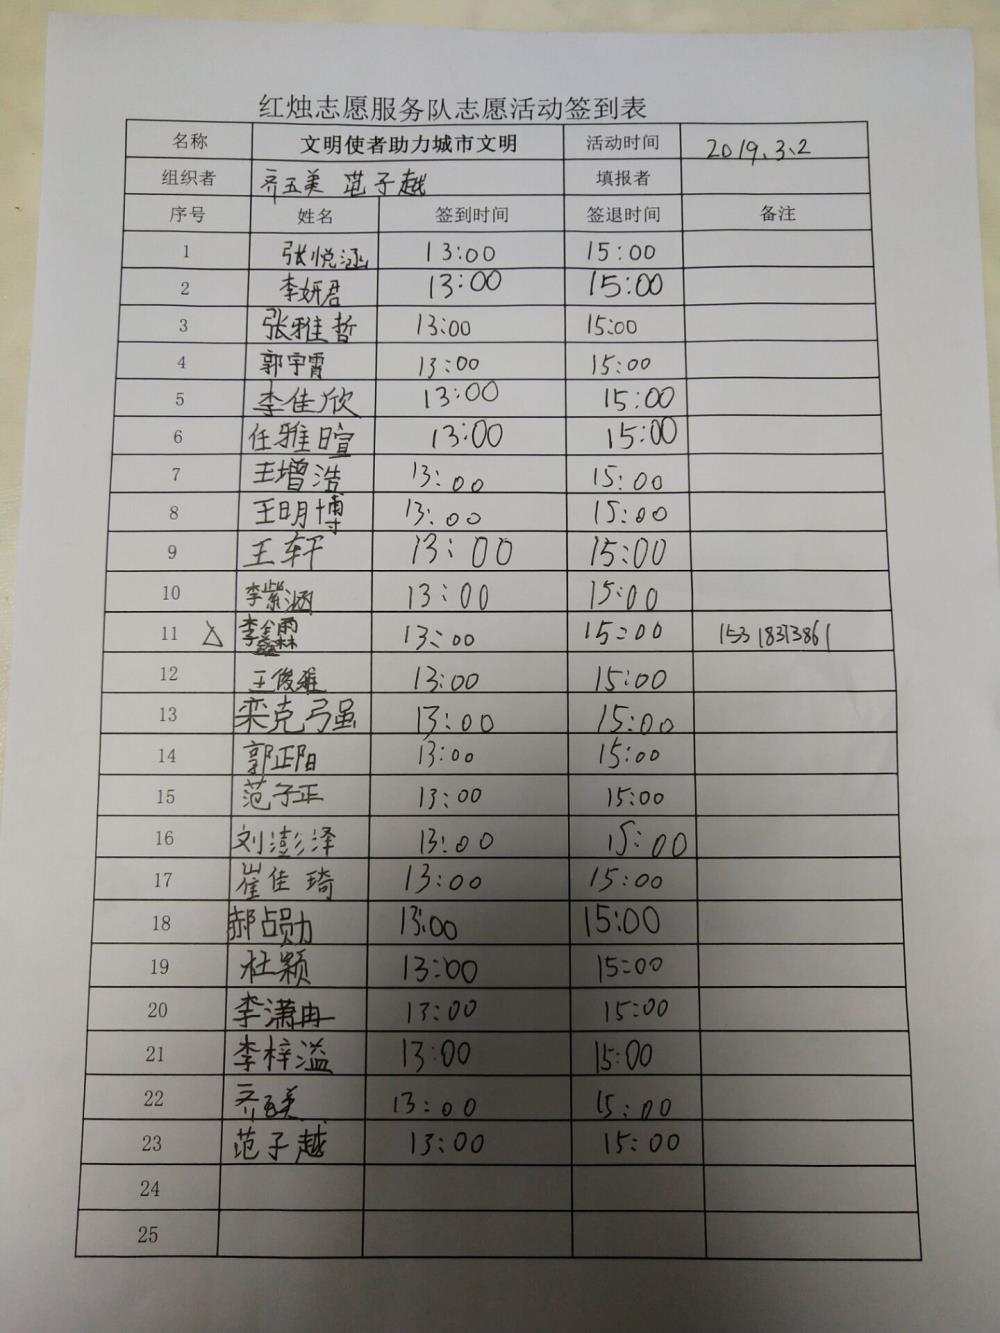 红烛志愿服务队志愿活动签到表
名称 文明使者助力城市文明 活动时间 2019.3.2
组织者 齐五美 范子越 填报者
序号 姓名 签到时间 签退时间 备注
1 张悦涵 13:00 15:00
2 李妍君 13:00 15:00
3 张雅哲 13:00 15:00
4 郭宇霄 13:00 15:00
5 李佳欣 13:00 15:00
6 任雅暄 13:00 15:00
7 王增浩 13:00 15:00
8 王明博 13:00 15:00
9 王轩 13:00 15:00
10 李紫涵 13:00 15:00
11 △ 李鑫霖 13:00 15:00 15318373861
12 王俊雅 13:00 15:00
13 栾克强 13:00 15:00
14 郭正阳 13:00 15:00
15 范子正 13:00 15:00
16 刘澎泽 13:00 15:00
17 崔佳琦 13:00 15:00
18 郝占勋 13:00 15:00
19 杜颖 13:00 15:00
20 李潇冉 13:00 15:00
21 李梓溢 13:00 15:00
22 齐五美 13:00 15:00
23 范子越 13:00 15:00
24
25